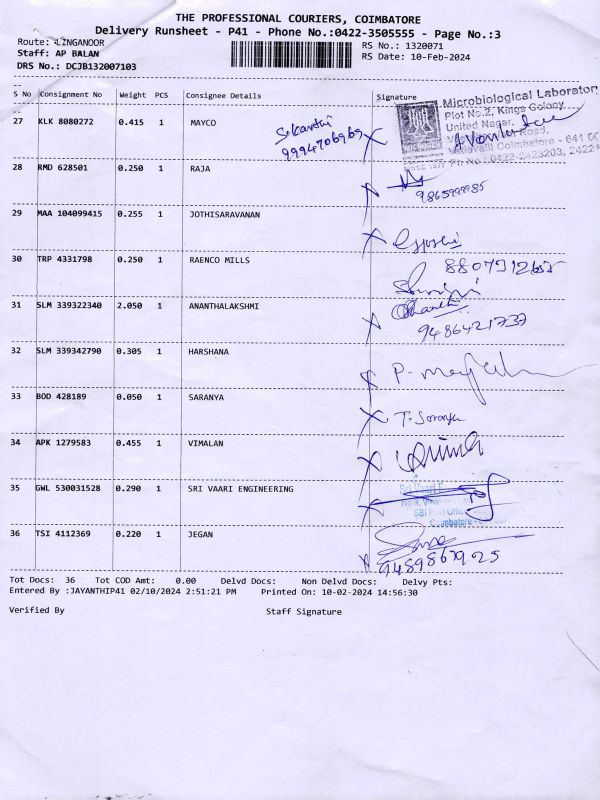 THE PROFESSIONAL COURIERS, COIMBATORE
Delivery Runsheet - P41 - Phone No.:0422-3505555 - Page No.:3
Route: LINGANOOR
Staff: AP BALAN
DRS No.: DCJB132007103
RS No.: 1320071
RS Date: 10-Feb-2024
S No Consignment No Weight PCS Consignee Details Signature
Microbiological Laborator
Plot No.2, Kings Colony,
United Nagar,
Coimbatore - 641
27 KLK 8080272 0.415 1 MAYCO
9994706969
28 RMD 628501 0.250 1 RAJA
9865999985
29 MAA 104099415 0.255 1 JOTHISARAVANAN
30 TRP 4331798 0.250 1 RAENCO MILLS
31 SLM 339322340 2.050 1 ANANTHALAKSHMI
9486421737
32 SLM 339342790 0.305 1 HARSHANA
33 BOD 428189 0.050 1 SARANYA
T. Saranya
34 APK 1279583 0.455 1 VIMALAN
35 GWL 530031528 0.290 1 SRI VAARI ENGINEERING
Sri Vaari E
SBI
Coimbatore
36 TSI 4112369 0.220 1 JEGAN
Tot Docs: 36 Tot COD Amt: 0.00 Delvd Docs: Non Delvd Docs: Delvy Pts:
Entered By :JAYANTHIP41 02/10/2024 2:51:21 PM Printed On: 10-02-2024 14:56:30
Verified By Staff Signature